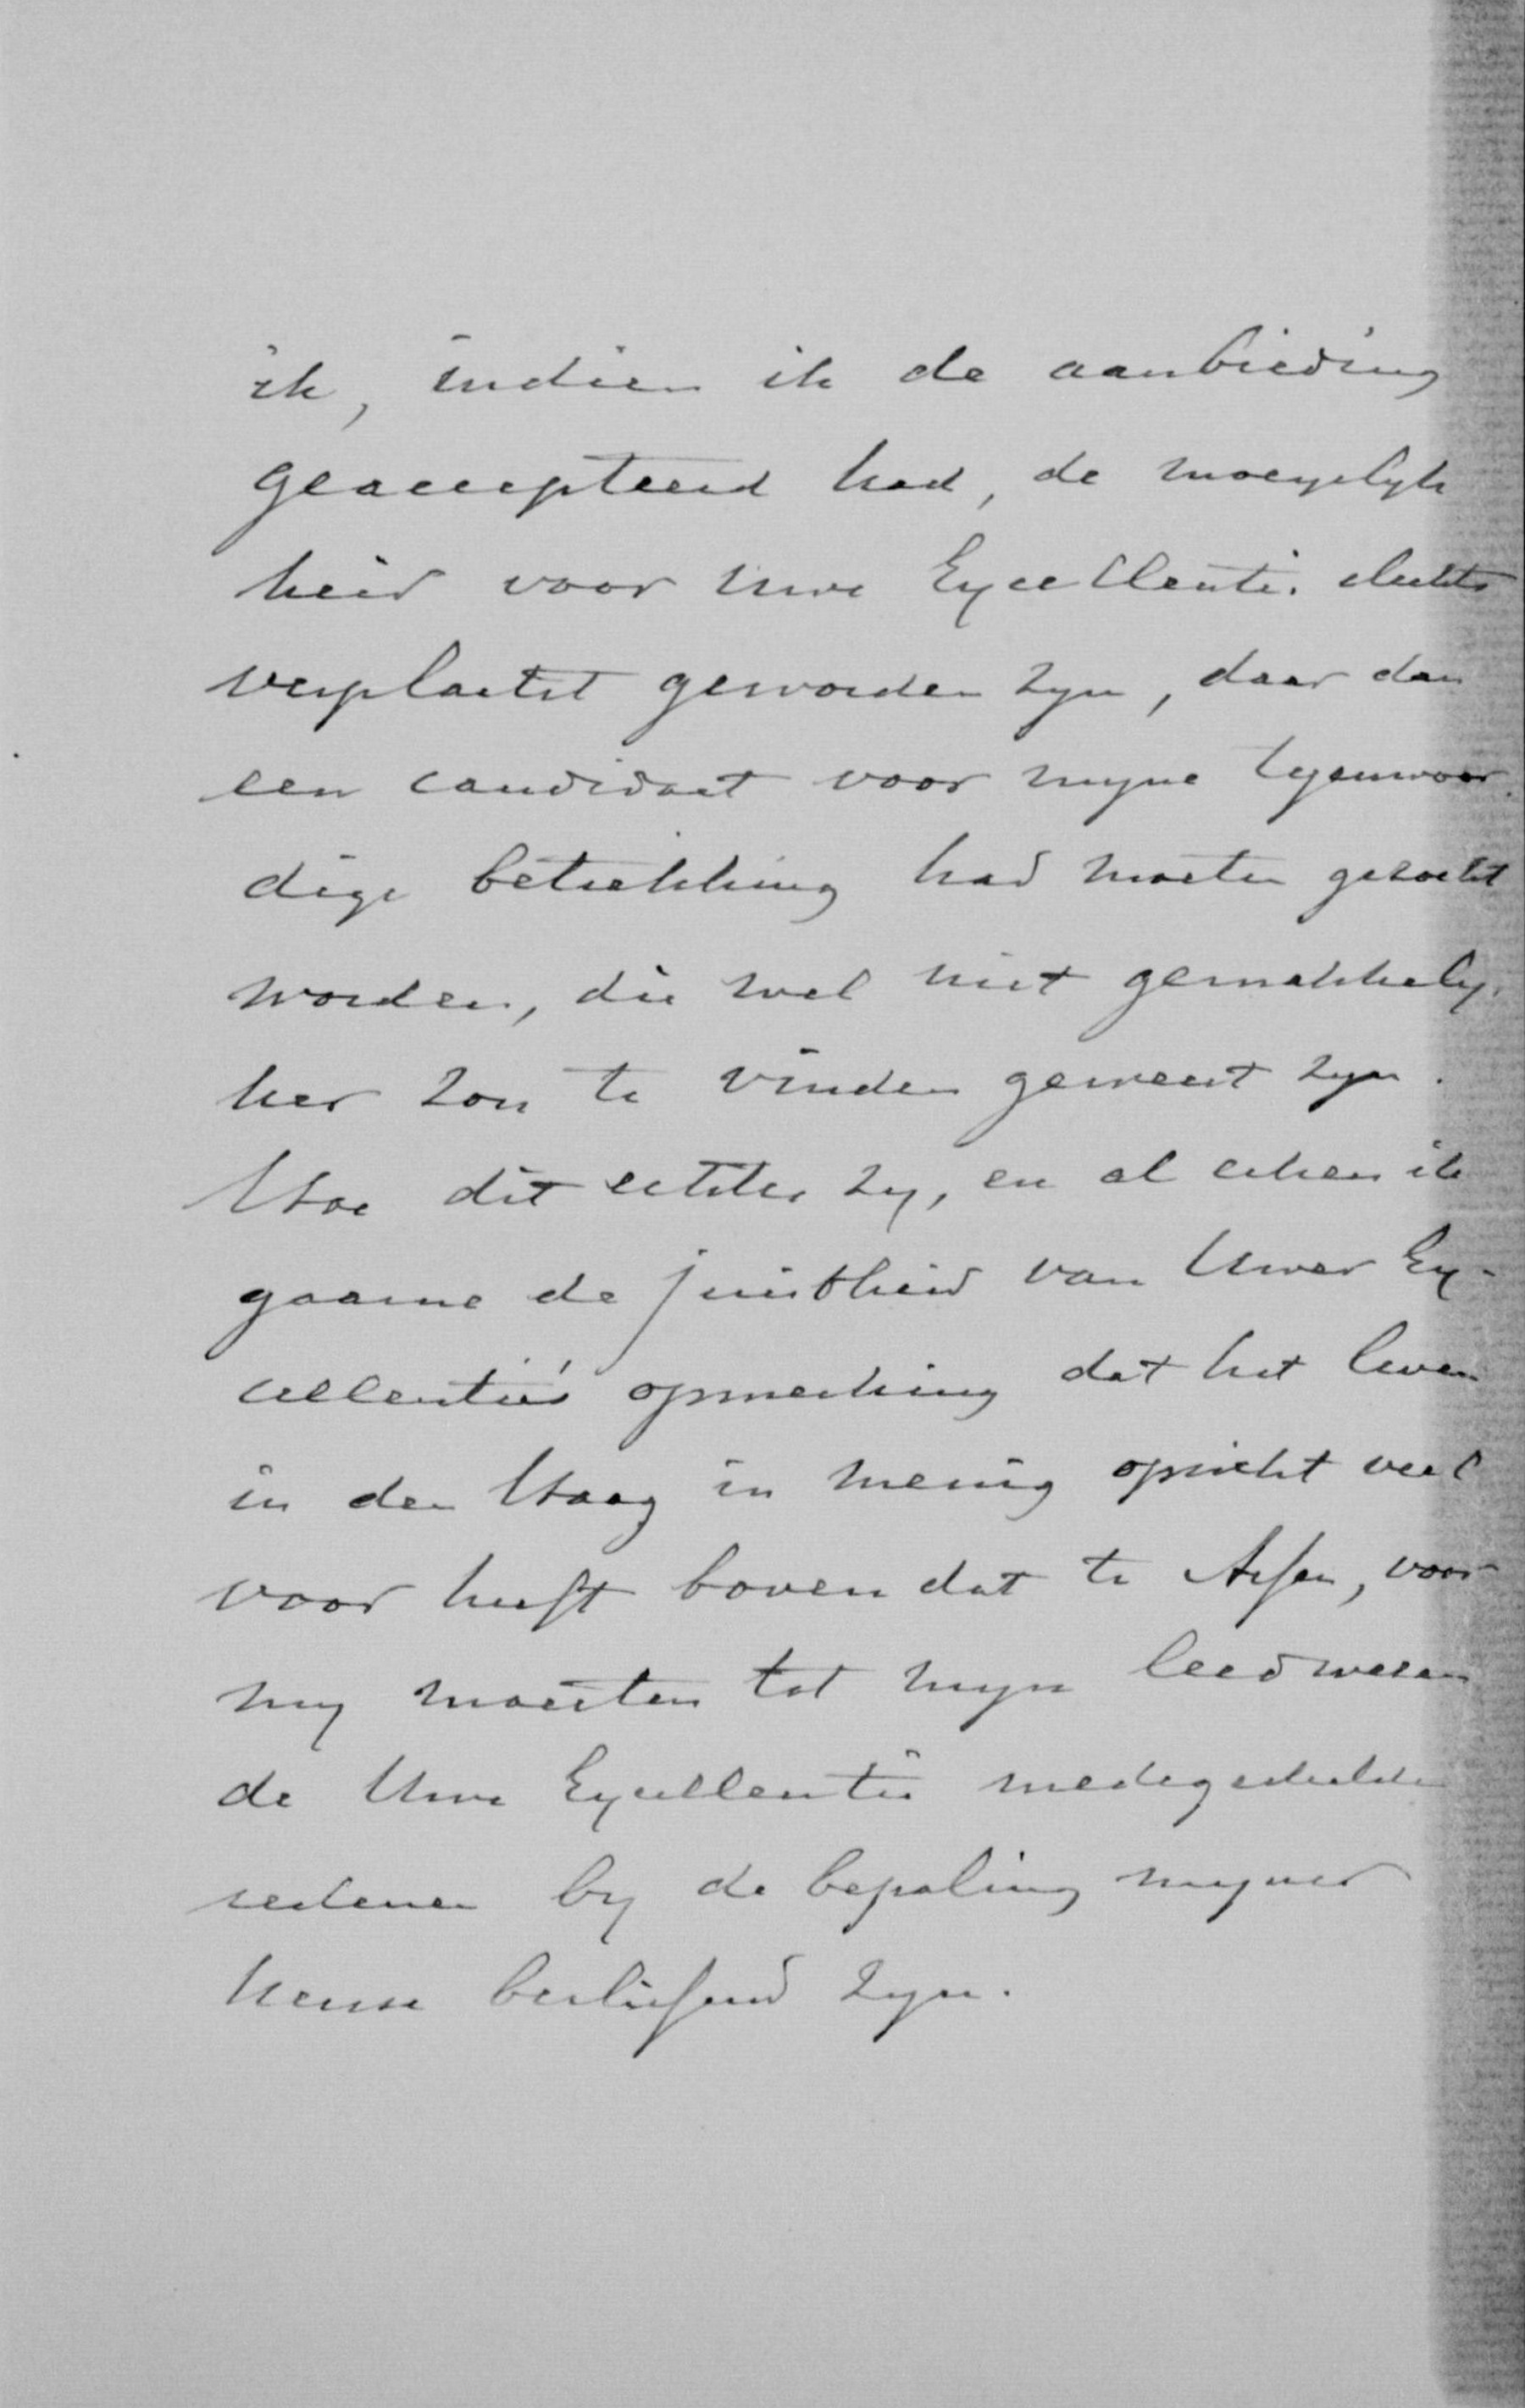 ik, indien ik de aanbieding
geaccepteerd had, de moeyelyk
heid voor Uwe Excellentie slechts
verplaatst geworden zyn, daar dan
een candidaat voor myne tegenwoor
dige betrekking had moeten gezocht
worden, die wel niet gemakkely
ker zou te vinden geweest zyn.
Hoe dit echter zy, en al erken ik
gaarne de juistheid van Uwer Ex-
cellentie's opmerking dat het leven
in den Haag in menig opzicht veel
voor heeft boven dat te Assen, voor
my moesten tot myn leedwezen
de Uwe Excellentie medegedeelde
redenen by de bepaling myner
keuse beslissend zyn.